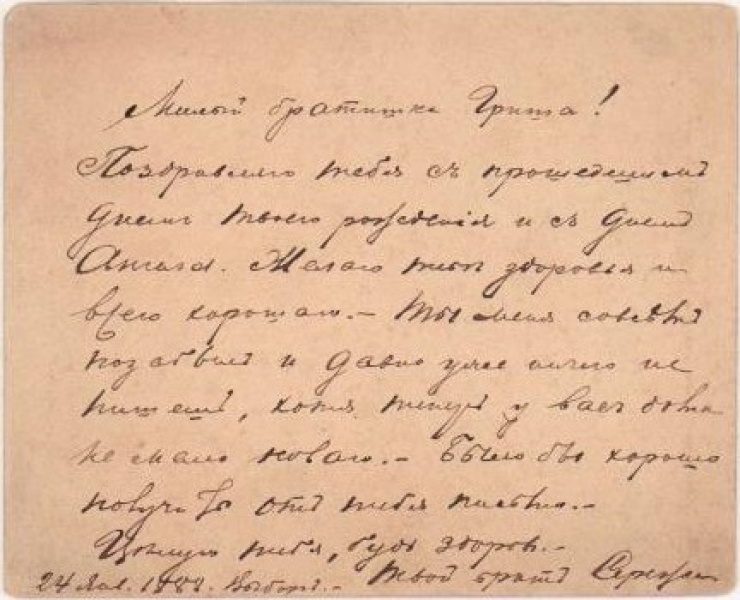 Милый братишка Гриша!
Поздравляю тебя съ прошедшимъ
днемъ твоего рожденія и съ днемъ
Ангела. Желаю тебѣ здоровья и
всего хорошаго.– Ты меня совсѣмъ
позабылъ и давно уже ничего не
пишешь, хотя теперь у васъ дома
не мало новаго.– Было бы хорошо
получить отъ тебя письмо.–
Цѣлую тебя, будь здоровъ.–
24 Янв. 1888. Выборгъ.– Твой братъ Сережа